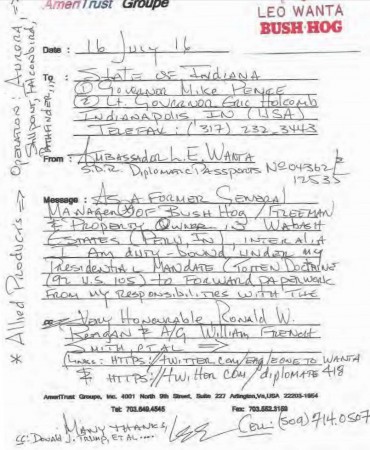 AmeriTrust Groupe
LEO WANTA
BUSH HOG
Date : 16 July 16
To : STATE OF INDIANA
① GOVERNOR MIKE PENCE
② Lt. GOVERNOR ERIC HOLCOMB
INDIANAPOLIS, IN (USA)
TELEFAX: (317) 232-3443
From : AMBASSADOR L.E. WANTA
S.D.R. DIPLOMATIC PASSPORTS Nº 04362 &
12535
Message : AS A FORMER GENERAL
MANAGER OF BUSH HOG / FREEMAN
& PROPERTY OWNER IN WABASH
STATES (PERU, IN), INTER ALIA
I AM DUTY-BOUND UNDER MY
PRESIDENTIAL MANDATE (TOTTEN DOCTRINE
(92 U.S. 105) TO FORWARD PAPERWORK
FROM MY RESPONSIBILITIES WITH THE
VERY HONOURABLE RONALD W.
REAGAN & A/G WILLIAM FRENCH
SMITH, ET AL
LINKS: HTTPS://TWITTER.COM/EAGLEONETOWANTA
& HTTPS://TWITTER.COM/DIPLOMATE418
AmeriTrust Groupe, Inc. 4001 North 9th Street, Suite 227 Arlington, Va, USA 22203-1954
Tel: 703.649.4545 Fax: 703.652.3159
MANY THANKS,
CELL: (509) 714.0507
cc: Donald J. TRUMP, ET AL....
* Allied Products => OPERATION: AURORA,
SAILPOINT, FALCONBIRD,
PATHFINDER...